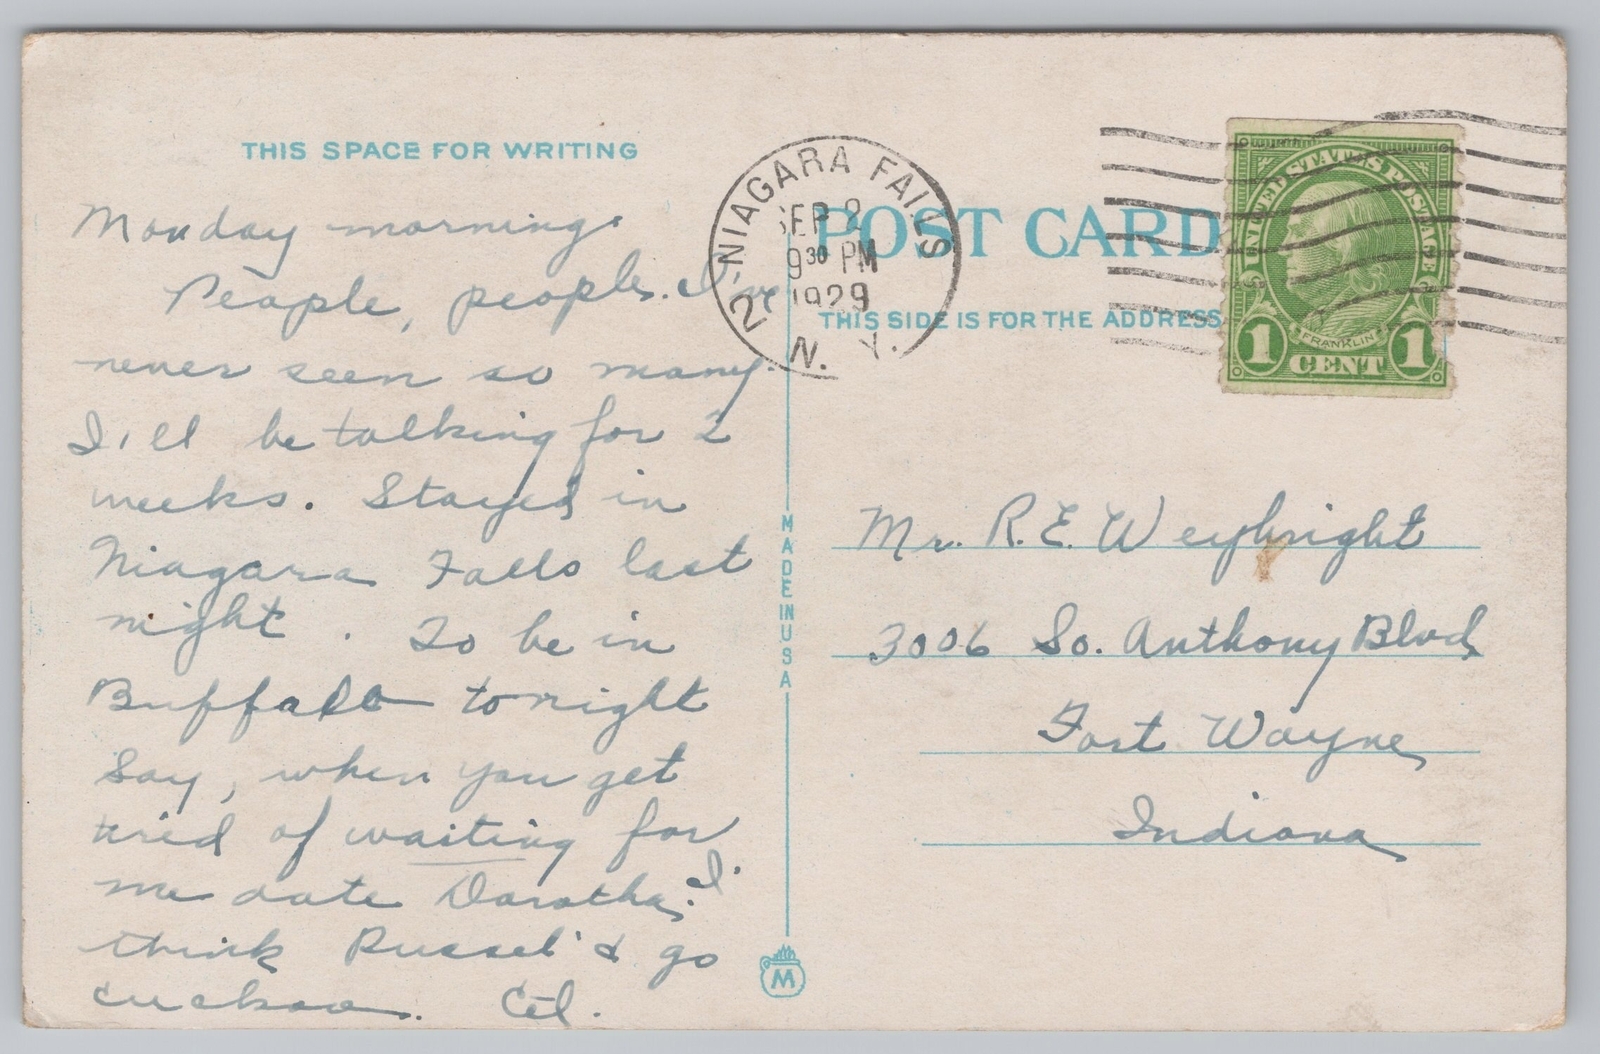 THIS SPACE FOR WRITING
Monday morning.
People, people. I've
never seen so many.
I'll be talking for 2
weeks. Stayed in
Niagara Falls last
night. To be in
Buffalo tonight
Say, when you get
tired of waiting for
me date Dorotha. I
think Russel'd go
cuckoo. Cel.
NIAGARA FALLS
2
SEP 2
9 30 PM
1929
N. Y.
POST CARD
THIS SIDE IS FOR THE ADDRESS
UNITED STATES POSTAGE
FRANKLIN
1 CENT 1
MADE IN USA
M
Mr. R. E. Weybright
3006 So. Anthony Blvd
Fort Wayne
Indiana